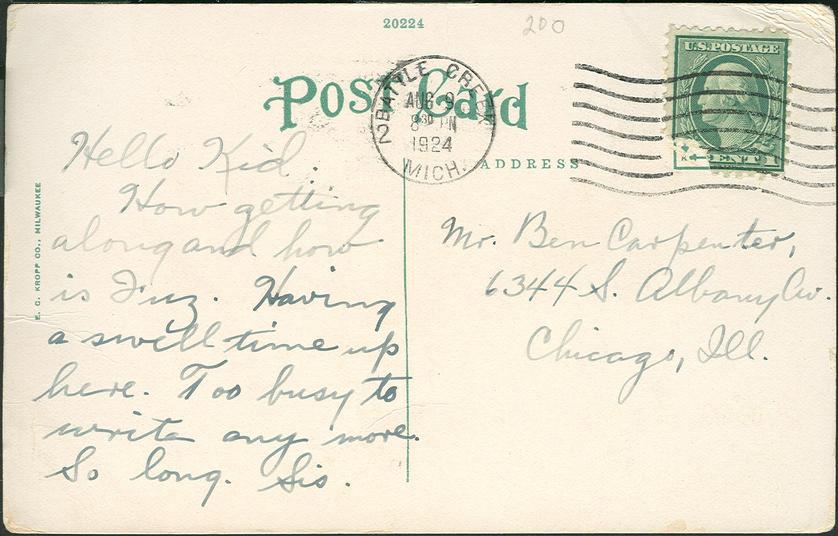 20224
200
U.S. POSTAGE
POST CARD
2 BATTLE CREEK
AUG 9
8 30 PM
1924
MICH.
ADDRESS
1 CENT 1
E. C. KROPP CO., MILWAUKEE
Hello Kid.
How getting
along and how
is Fuz. Having
a swell time up
here. Too busy to
write any more.
So long. Sis.
Mr. Ben Carpenter,
6344 S. Albany Av.
Chicago, Ill.